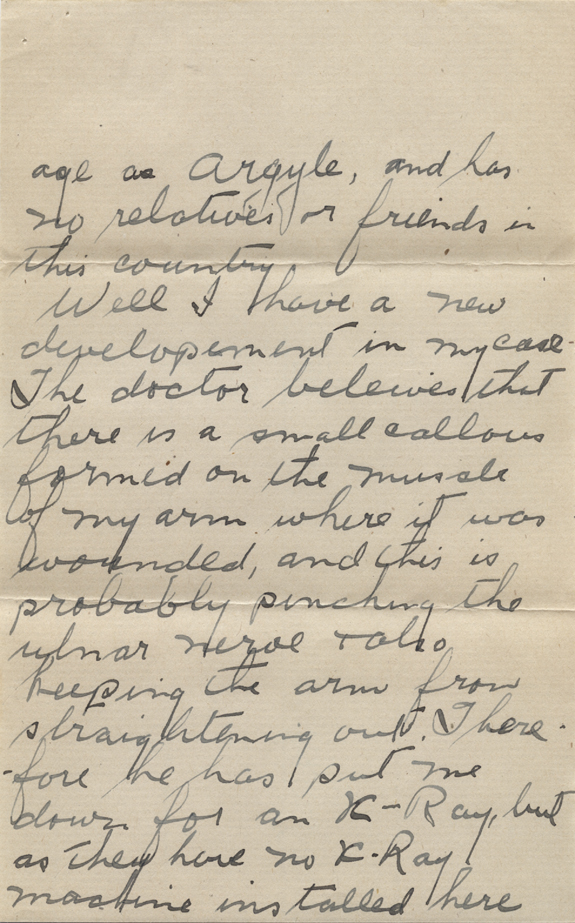 age as Argyle, and has
no relatives or friends in
this country.
Well I have a new
developement in my case.
The doctor beleives that
there is a small callous
formed on the muscle
of my arm where it was
wounded, and this is
probably pinching the
ulnar nerve + also
keeping the arm from
straightening out. There-
-fore he has put me
down for an X-Ray, but
as they have no X-Ray
machine installed here